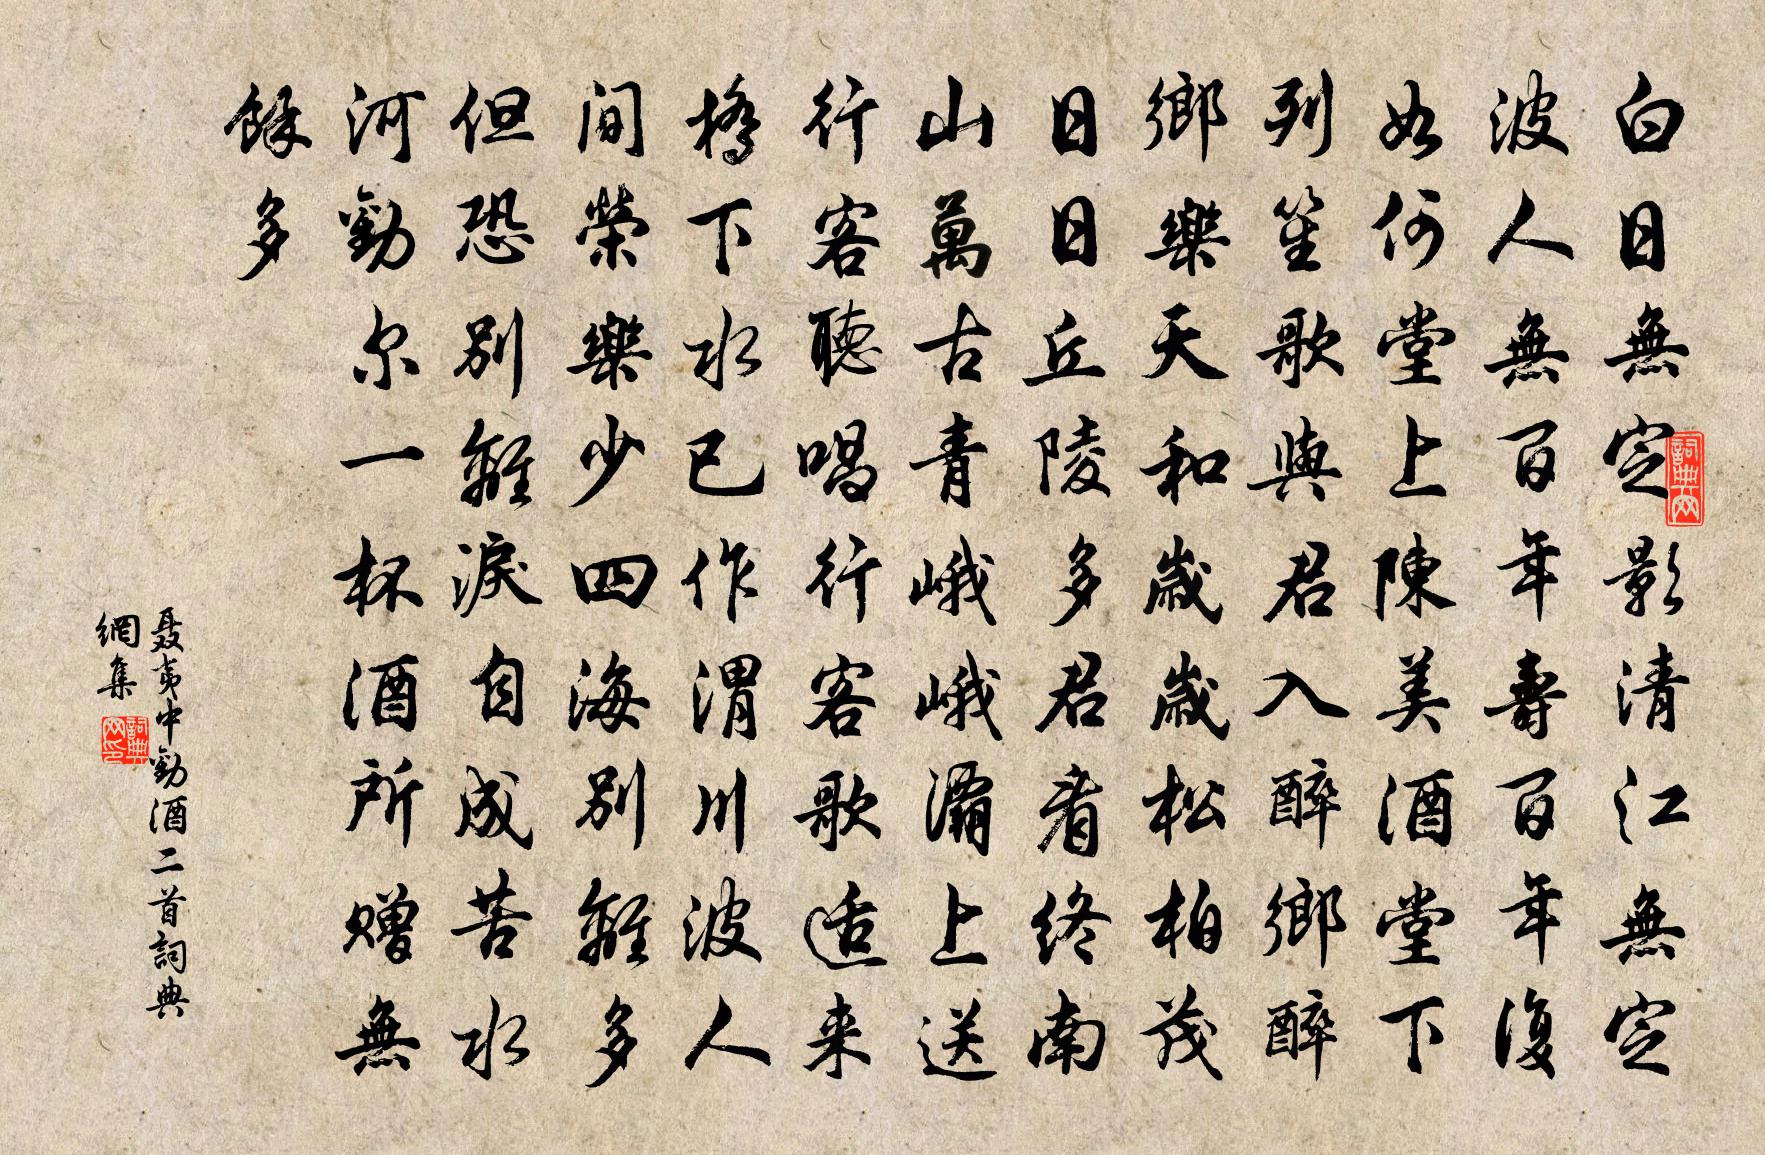 白日無定影清江無定
波人無百年壽百年復
如何堂上陳美酒堂下
列笙歌與君入醉鄉醉
鄉樂天和歲歲松柏茂
日日丘陵多君看終南
山萬古青峨峨灞上送
行客聽唱行客歌適来
橋下水已作渭川波人
间榮樂少四海别離多
但恐别離淚自成苦水
河勸尔一杯酒所赠無
餘多
聂夷中勸酒二首詞典
網集
詞典网
詞典网印